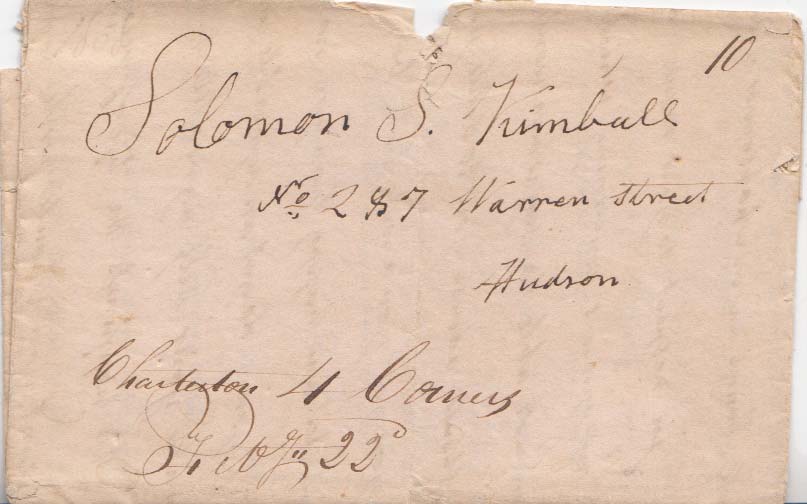 10
Solomon S. Kimball
No 287 Warren Street
Hudson
4 Corners
Feby 22d